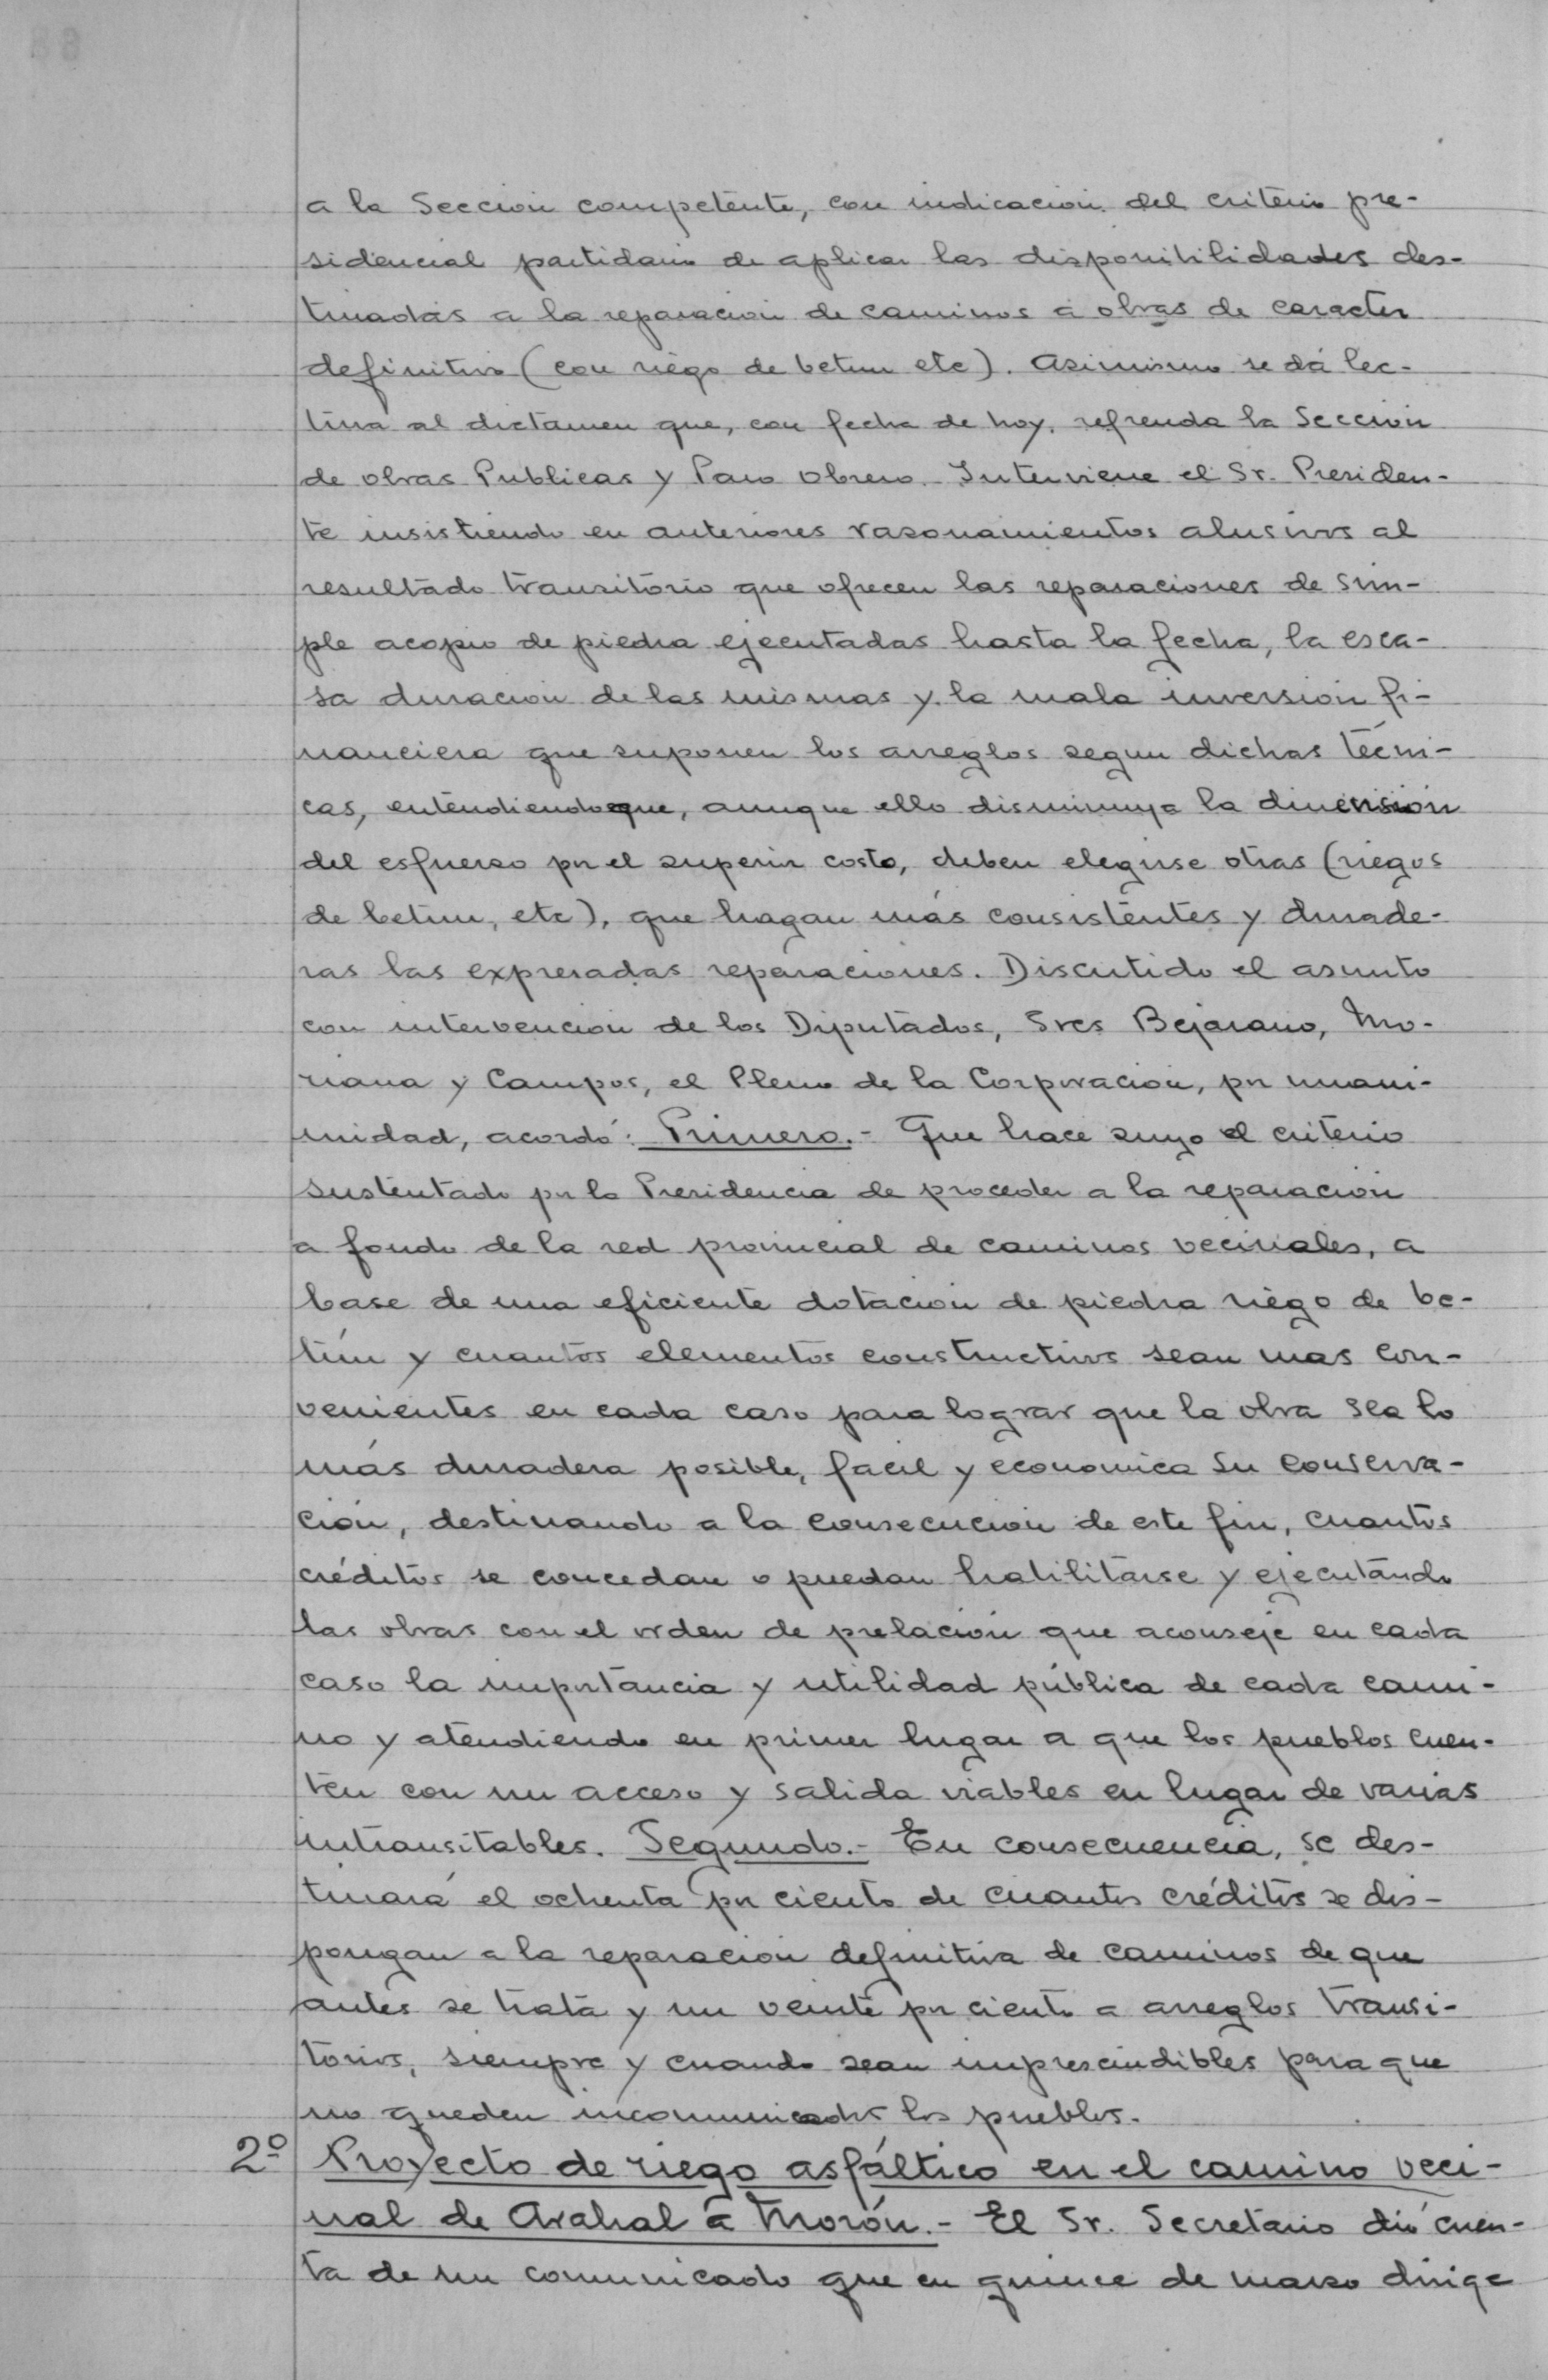 a la Sección competente, con indicación del criterio pre-
sidencial partidario de aplicar las disponibilidades des-
tinadas a la reparación de caminos a obras de caracter
definitivo (con riego de betun etc). Asimismo se dá lec-
tura al dictamen que, con fecha de hoy, refrenda la Sección
de obras Publicas y Paro obrero. Interviene el Sr. Presiden-
te insistiendo en anteriores rasonamientos alusivos al
resultado transitorio que ofrecen las reparaciones de sim-
ple acopio de piedra ejecutadas hasta la fecha, la esca-
sa duración de las mismas y la mala inversión fi-
nanciera que suponen los arreglos segun dichas técni-
cas, entendiendo que, aunque ello disminuya la dimensión
del esfuerzo por el superior costo, deben elegirse otras (riegos
de betun, etc), que hagan más consistentes y durade-
ras las expresadas reparaciones. Discutido el asunto
con intervención de los Diputados, Sres Bejarano, Mo-
riana y Campos, el Pleno de la Corporación, por unani-
midad, acordó: Primero.- Que hace suyo el criterio
sustentado por la Presidencia de proceder a la reparación
a fondo de la red provincial de caminos vecinales, a
base de una eficiente dotación de piedra riego de be-
tún y cuantos elementos constructivos sean mas con-
venientes en cada caso para lograr que la obra sea lo
más duradera posible, facil y economica su conserva-
ción, destinando a la consecución de este fin, cuantos
créditos se concedan o puedan habilitarse y ejecutando
las obras con el orden de prelación que aconseje en cada
caso la importancia y utilidad pública de cada cami-
no y atendiendo en primer lugar a que los pueblos cuen-
ten con un acceso y salida viables en lugar de varias
intransitables. Segundo.- En consecuencia, se des-
tinará el ochenta por ciento de cuantos créditos se dis-
pongan a la reparación definitiva de caminos de que
antes se trata y un veinte por ciento a arreglos transi-
torios, siempre y cuando sean imprescindibles para que
no queden incomunicados los pueblos.
2º Proyecto de riego asfáltico en el camino veci-
nal de Arahal a Morón.- El Sr. Secretario dió cuen-
ta de un comunicado que en quince de marzo dirige